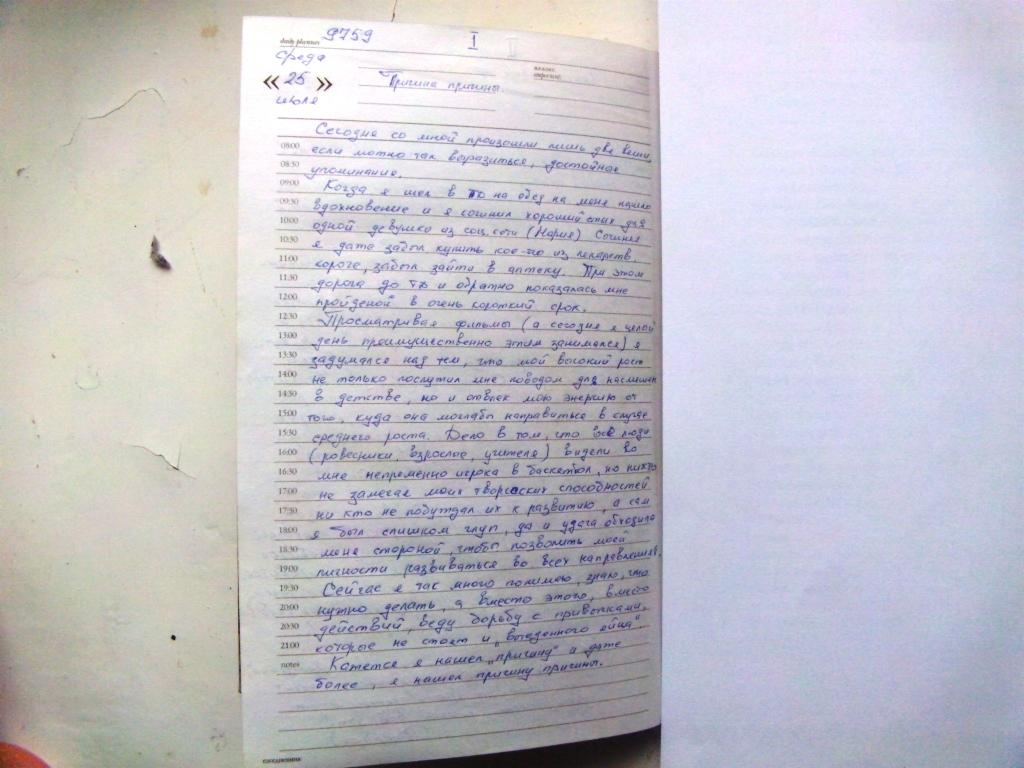 daily planner 9759 I II
среда
« 25 » Причина причины.
июля
Сегодня со мной произошли лишь две вещи,
08:00 если можно так выразиться, достойная
08:30 упоминания.
09:00 Когда я шел в ТЦ на обед на меня нашло
09:30 вдохновение и я сочинил хороший стих для
10:00 одной девушки из соц. сети (Мария) Сочиняя
10:30 я даже забыл купить кое-что из лекарств,
11:00 короче, забыл зайти в аптеку. При этом
11:30 дорога до и обратно показалась мне
12:00 пройденой в очень короткий срок.
12:30 Просматривая фильмы (а сегодня я целый
13:00 день преимущественно этим занимался) я
13:30 задумался над тем, что мой высокий рост
14:00 не только послужил мне поводом для насмешек
14:30 в детстве, но и отвлек мою энергию от
15:00 того, куда она моглабы направиться в случае
15:30 среднего роста. Дело в том, что все люди
16:00 (ровесники, взрослые, учителя) видели во
16:30 мне непременно игрока в баскетбол, но никто
17:00 не замечая моих творческих способностей
17:30 ни кто не побуждал их к развитию, а сам
18:00 я был слишком глуп, да и удача обходила
18:30 меня стороной, чтобы позволить моей
19:00 личности развиваться во всех направлениях.
19:30 Сейчас я так много понимаю, знаю, что
20:00 нужно делать, а вместо этого, вместо
20:30 действий, веду борьбу с привычками,
21:00 которые не стоят и „выеденного яйца".
notes Кажется я нашел „причину" и даже
более, я нашел причину причины.
ежедневник